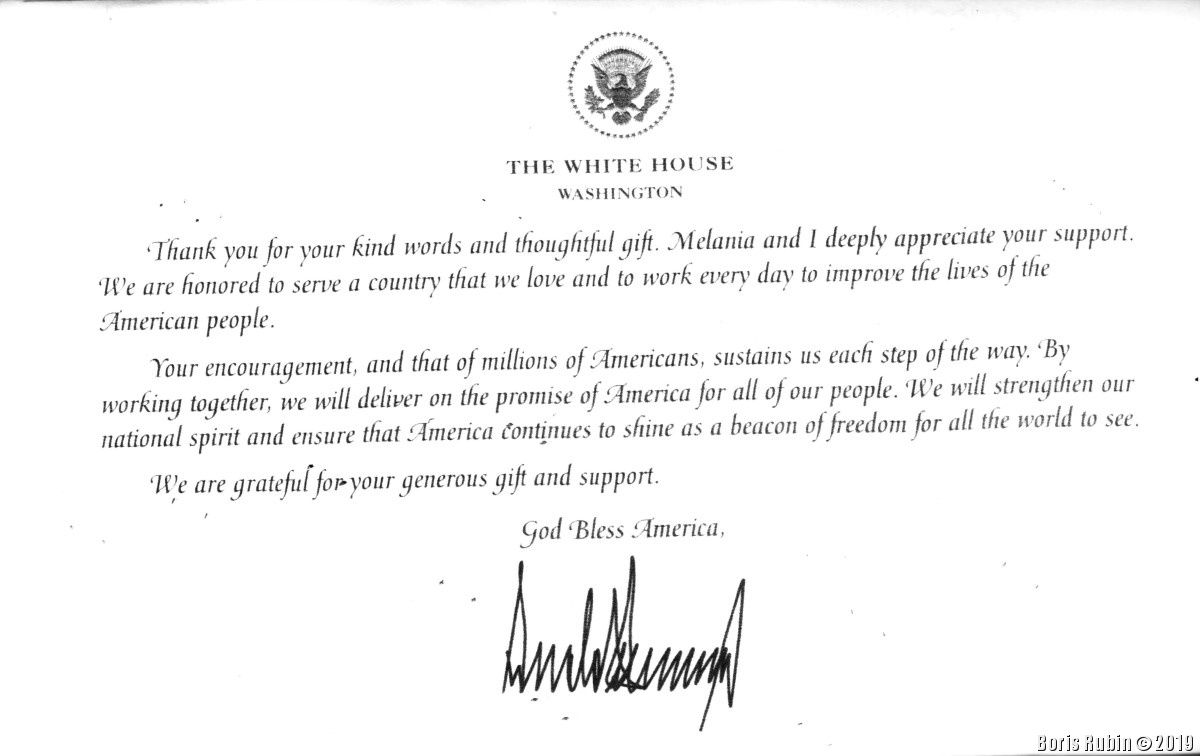 THE WHITE HOUSE
WASHINGTON
Thank you for your kind words and thoughtful gift. Melania and I deeply appreciate your support.
We are honored to serve a country that we love and to work every day to improve the lives of the
American people.
Your encouragement, and that of millions of Americans, sustains us each step of the way. By
working together, we will deliver on the promise of America for all of our people. We will strengthen our
national spirit and ensure that America continues to shine as a beacon of freedom for all the world to see.
We are grateful for your generous gift and support.
God Bless America,
Boris Rubin © 2019